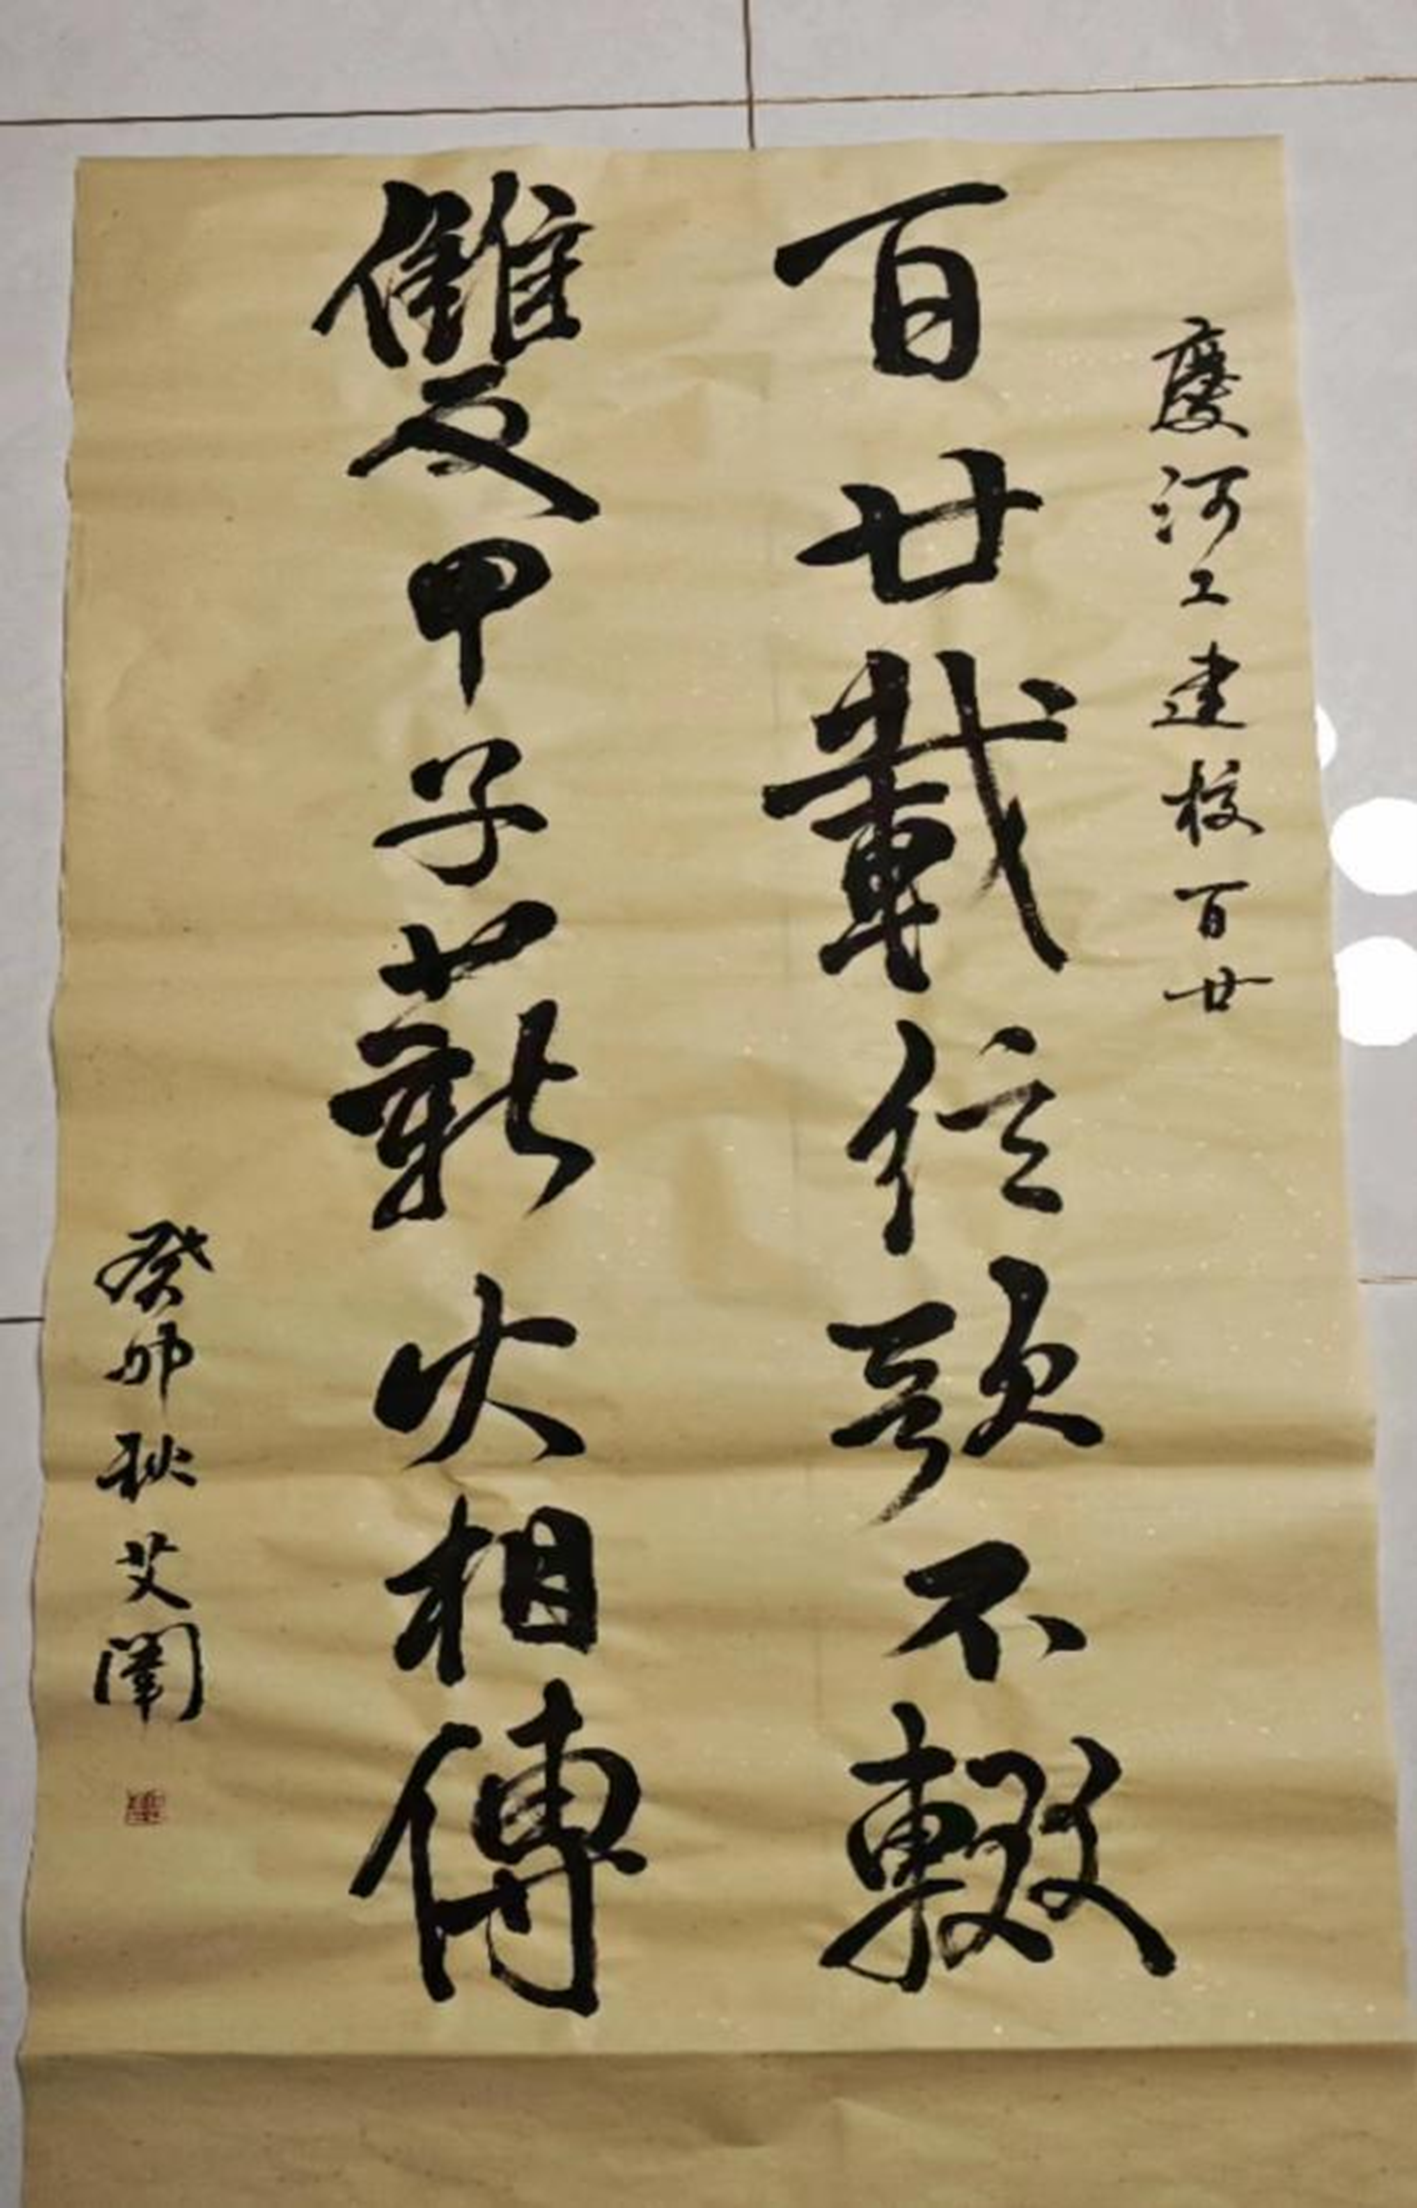 慶河工建校百廿
百廿載弦歌不輟
雙甲子薪火相傳
癸卯秋艾闡